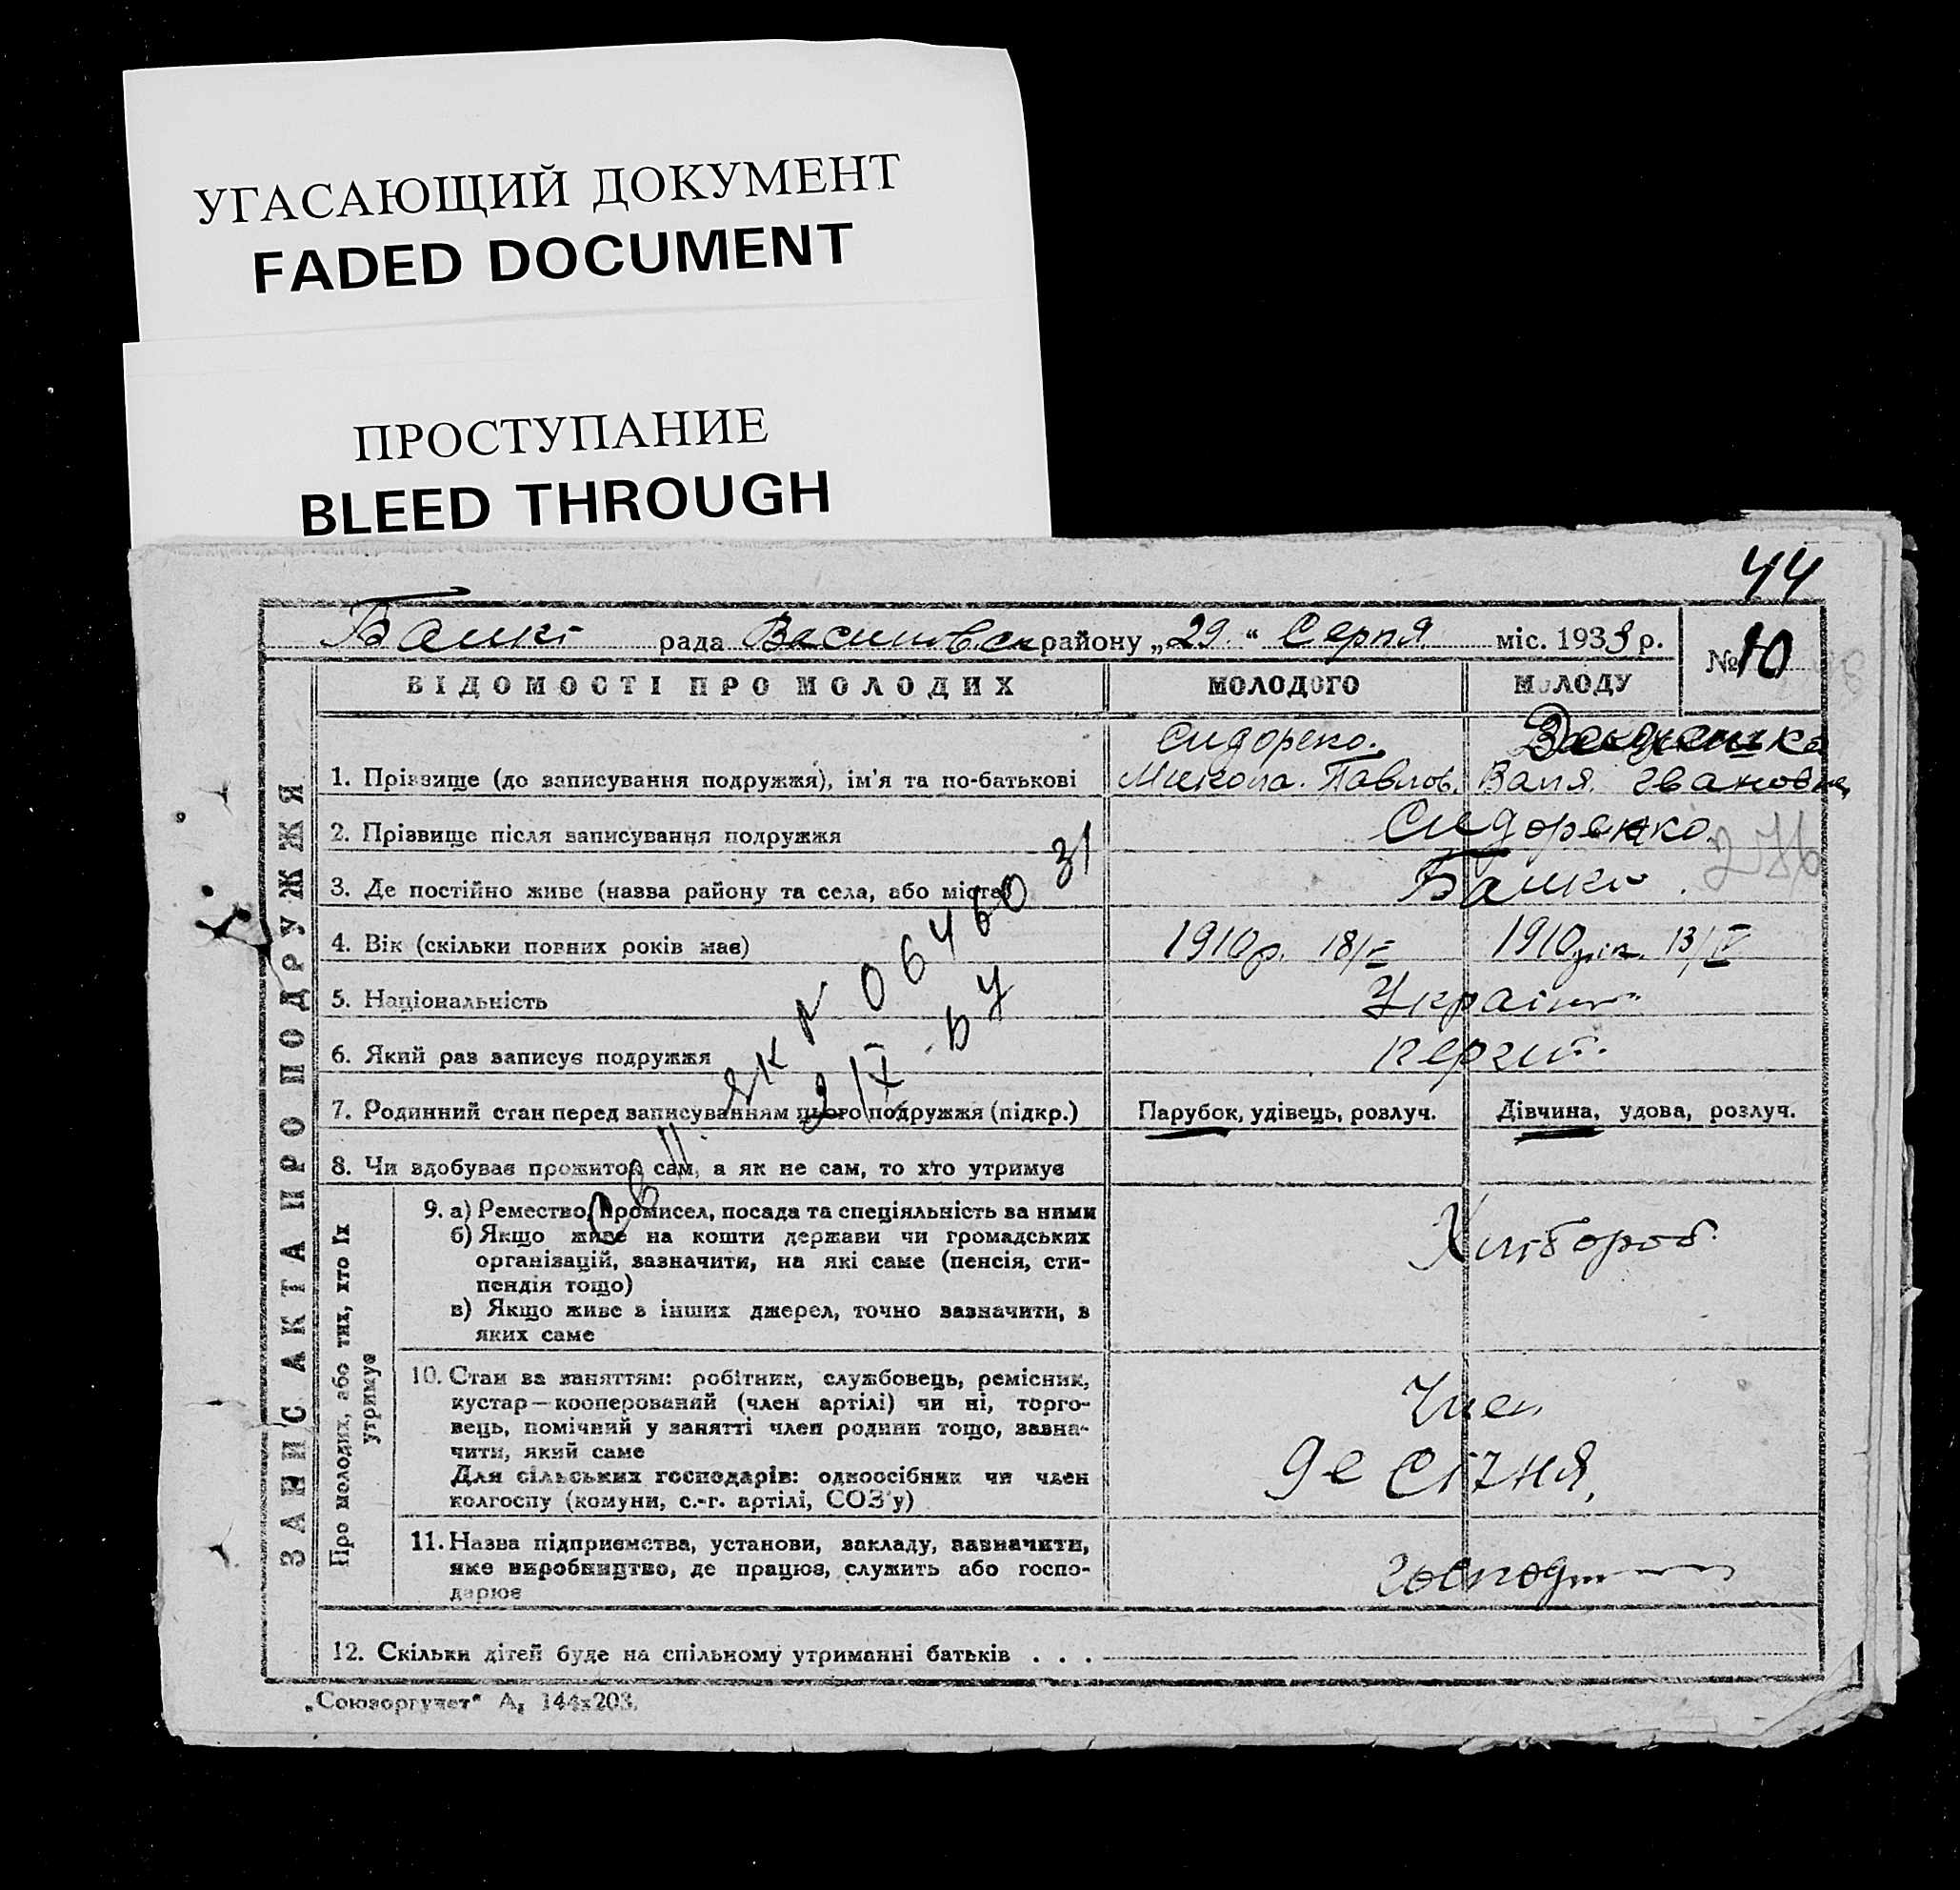 УГАСАЮЩИЙ ДОКУМЕНТ
FADED DOCUMENT
ПРОСТУПАНИЕ
BLEED THROUGH
44
рада району „29“ Серпя міс. 1933 р.
№ 10
ВІДОМОСТІ ПРО МОЛОДИХ МОЛОДОГО МОЛОДУ
ЗАПИС АКТА ПРО ПОДРУЖЖЯ
Сидорепо.
1. Прізвище (до записування подружжя), ім'я та по-батькові Микола. Павлов. Валя. Івановна
2. Прізвище після записування подружжя Сидоренко
31
3. Де постійно живе (назва району та села, або міста)
4. Вік (скільки повних років має) 1910р. 1910
5. Національність
6. Який раз записує подружжя
7. Родинний стан перед записуванням цього подружжя (підкр.) Парубок, удівець, розлуч. Дівчина, удова, розлуч.
8. Чи здобуває прожиток сам, а як не сам, то хто утримує
Про молодих, або тих, хто їх утримує
9. а) Ремество, промисел, посада та спеціяльність за ними
б) Якщо живе на кошти держави чи громадських
організацій, зазначити, на які саме (пенсія, сти-
пендія тощо)
в) Якщо живе з інших джерел, точно зазначити, з
яких саме
Хлібороб.
10. Стан за заняттям: робітник, службовець, ремісник,
кустар—кооперований (член артілі) чи ні, торго-
вець, помічний у занятті член родини тощо, зазна-
чити, який саме
Для сільських господарів: одноосібник чи член
колгоспу (комуни, с.-г. артілі, СОЗ'у)
Член
9е Січня,
11. Назва підприємства, установи, закладу, зазначити,
яке виробництво, де працює, служить або госпо-
дарює
12. Скільки дітей буде на спільному утриманні батьків . . .
„Союзоргучет“ А₅ 144х203.